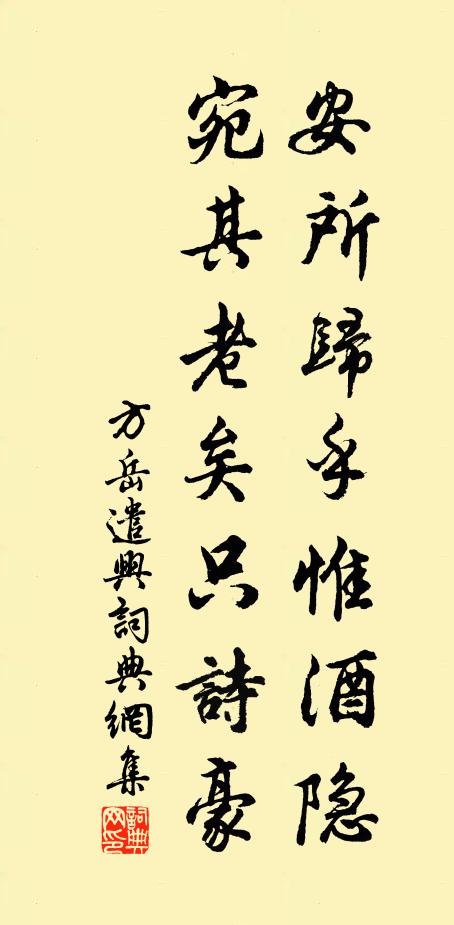 安所歸乎惟酒隐
宛其老矣只詩豪
方岳遣興詞典網集
詞典网印